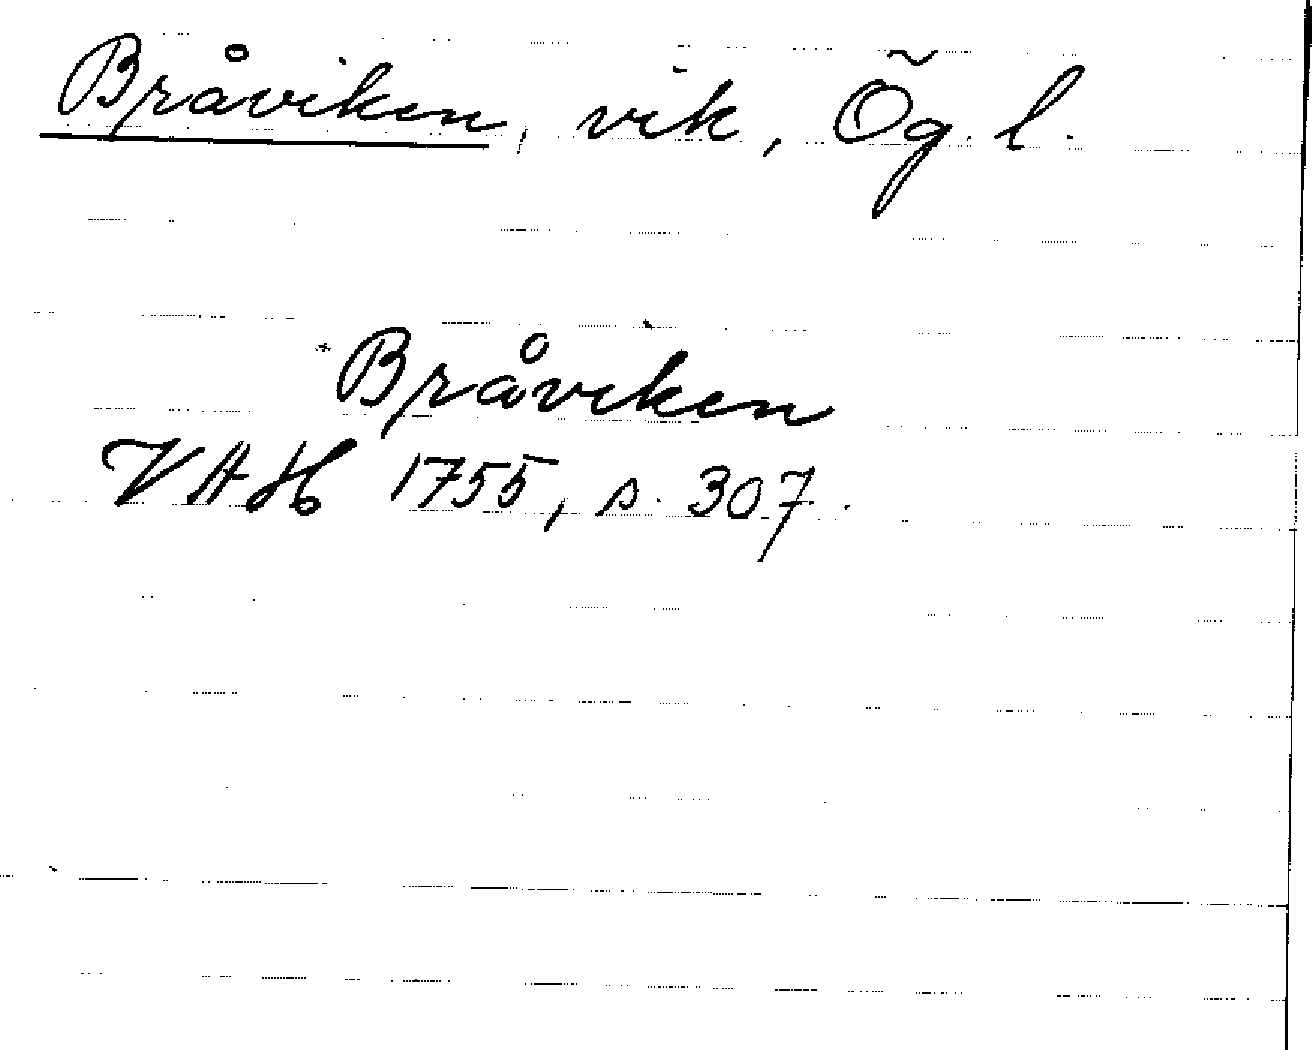 Bråviken, vik, Ög. l.
Bråviken
VAH 1755, s. 307.